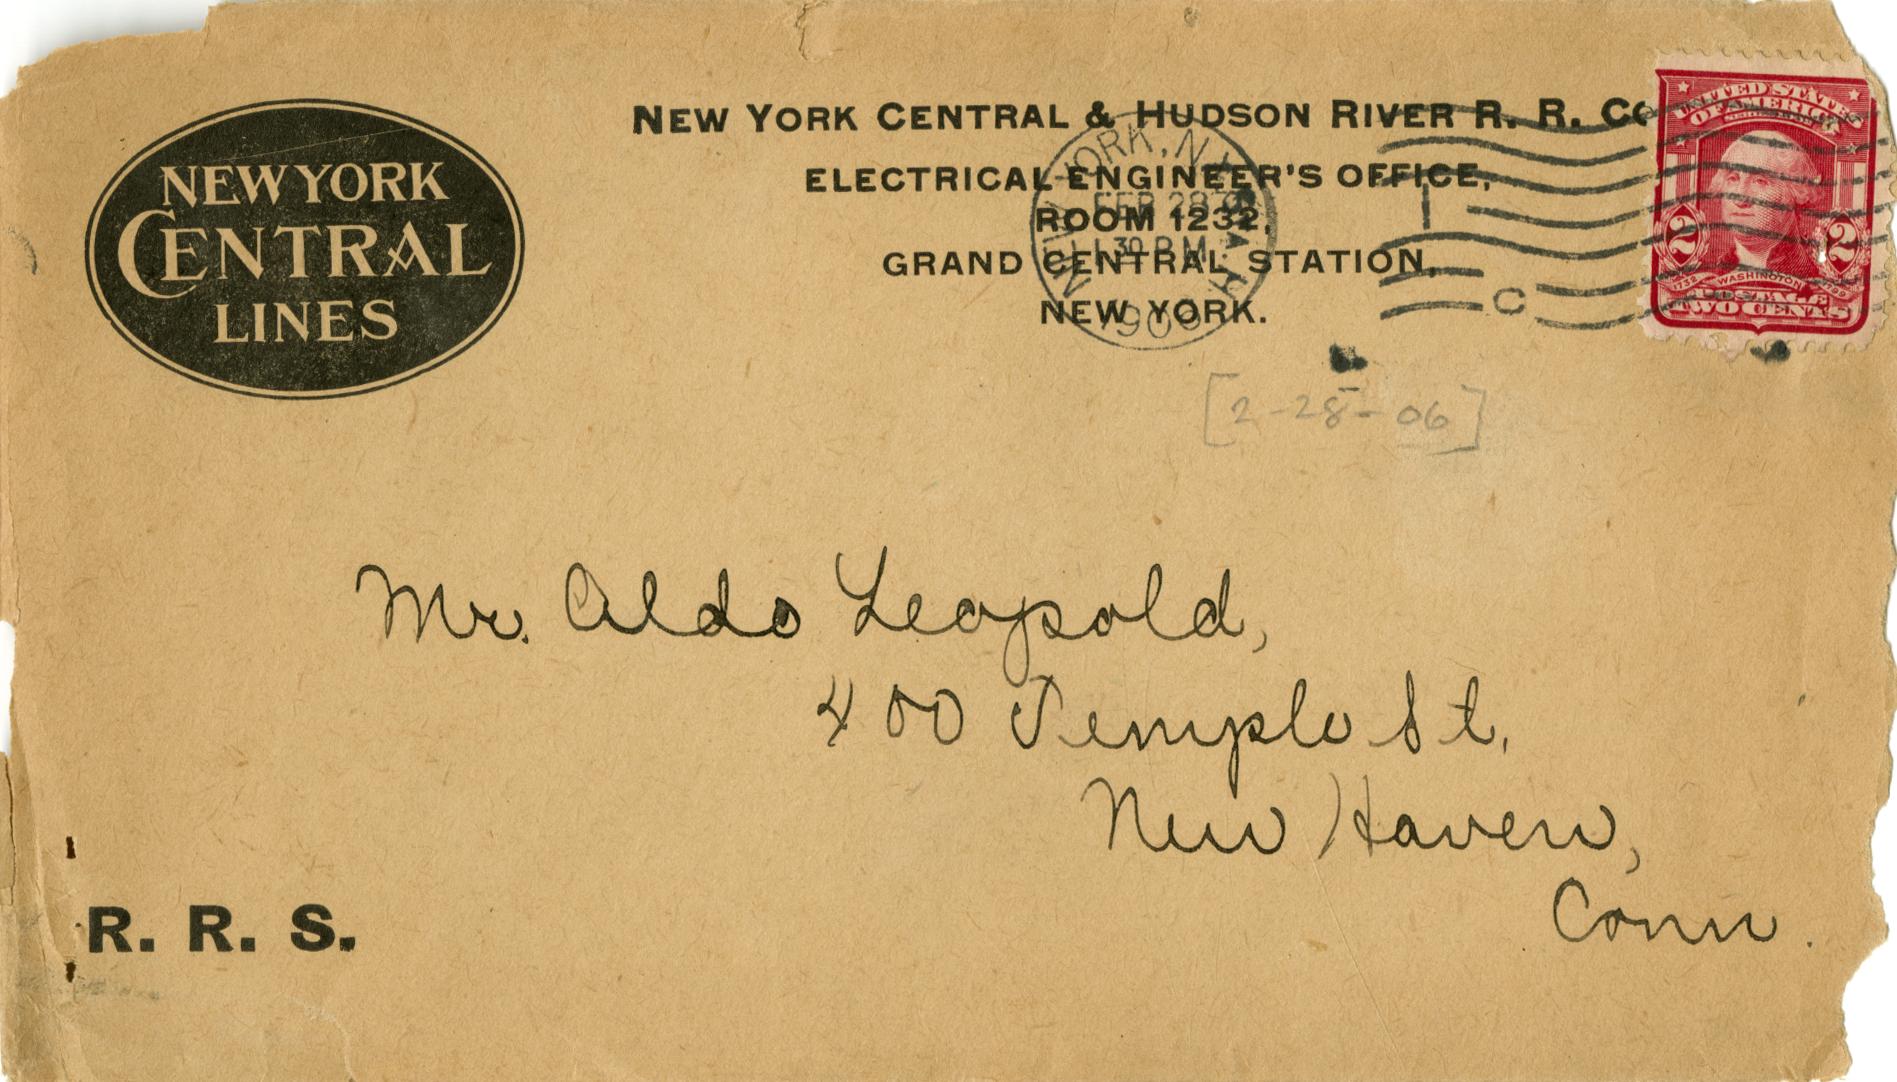 NEW YORK
CENTRAL
LINES
NEW YORK CENTRAL & HUDSON RIVER R. R. Co
ELECTRICAL ENGINEER'S OFFICE,
ROOM 1232,
GRAND CENTRAL STATION,
NEW YORK.
NEW YORK, N.Y. STA. H
FEB 28
11 30 PM
190
C
UNITED STATES
OF AMERICA
2 2
1732 WASHINGTON 1799
POSTAGE
TWO CENTS
[2-28-06]
Mr. Aldo Leopold,
400 Temple St.
New Haven,
Conn.
R. R. S.